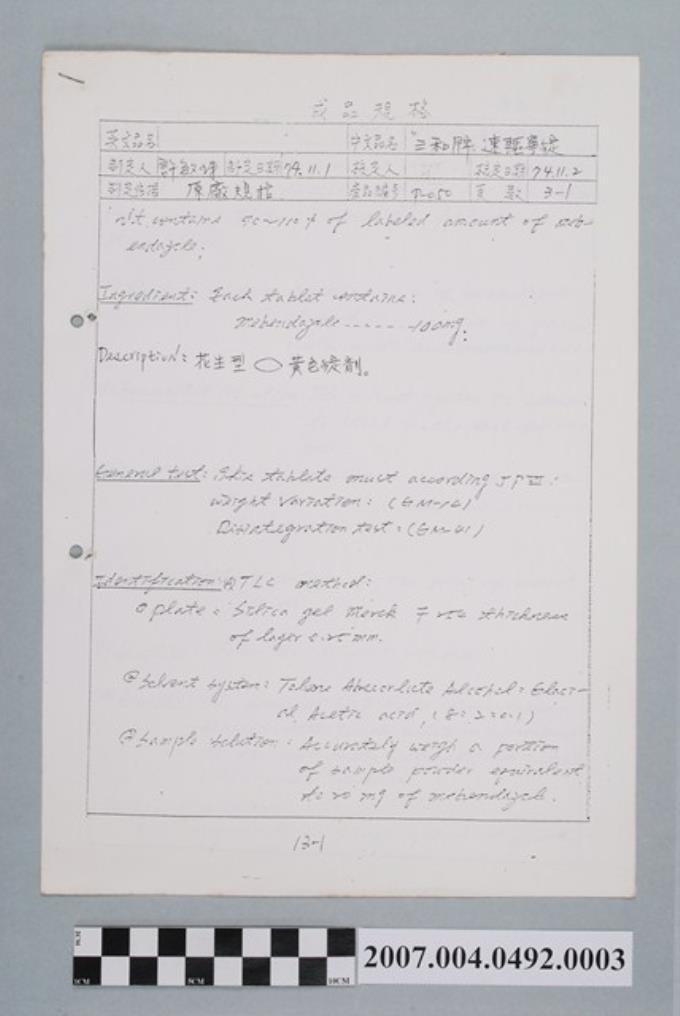 成品規格
英文品名 中文品名 "三和牌"速驅寧錠
制定人 許敏峰 制定日期 74.11.1 核定人 核定日期 74.11.2
制定依據 原廠規格 產品編號 頁數 3-1
It contains 90~110% of labeled amount of meb-
endazole;
Ingredient: Each tablet contains:
mebendazole ----- 100mg.
Description: 花生型 黃色錠劑。
General test: The tablets must according JP
Weight Variation: (GM-
Disintegration test: (GM-
Identification: TLC method:
plate: Silica gel Merck F 254 thickness
of layer 0.25 mm.
Solvent system: Alcohol: Glaci-
al Acetic acid, (8:2:0.1)
Sample Solution: Accurately weigh a portion
of sample powder equivalent
to 20 mg of mebendazole.
13-1
0CM 5CM 10CM
2007.004.0492.0003